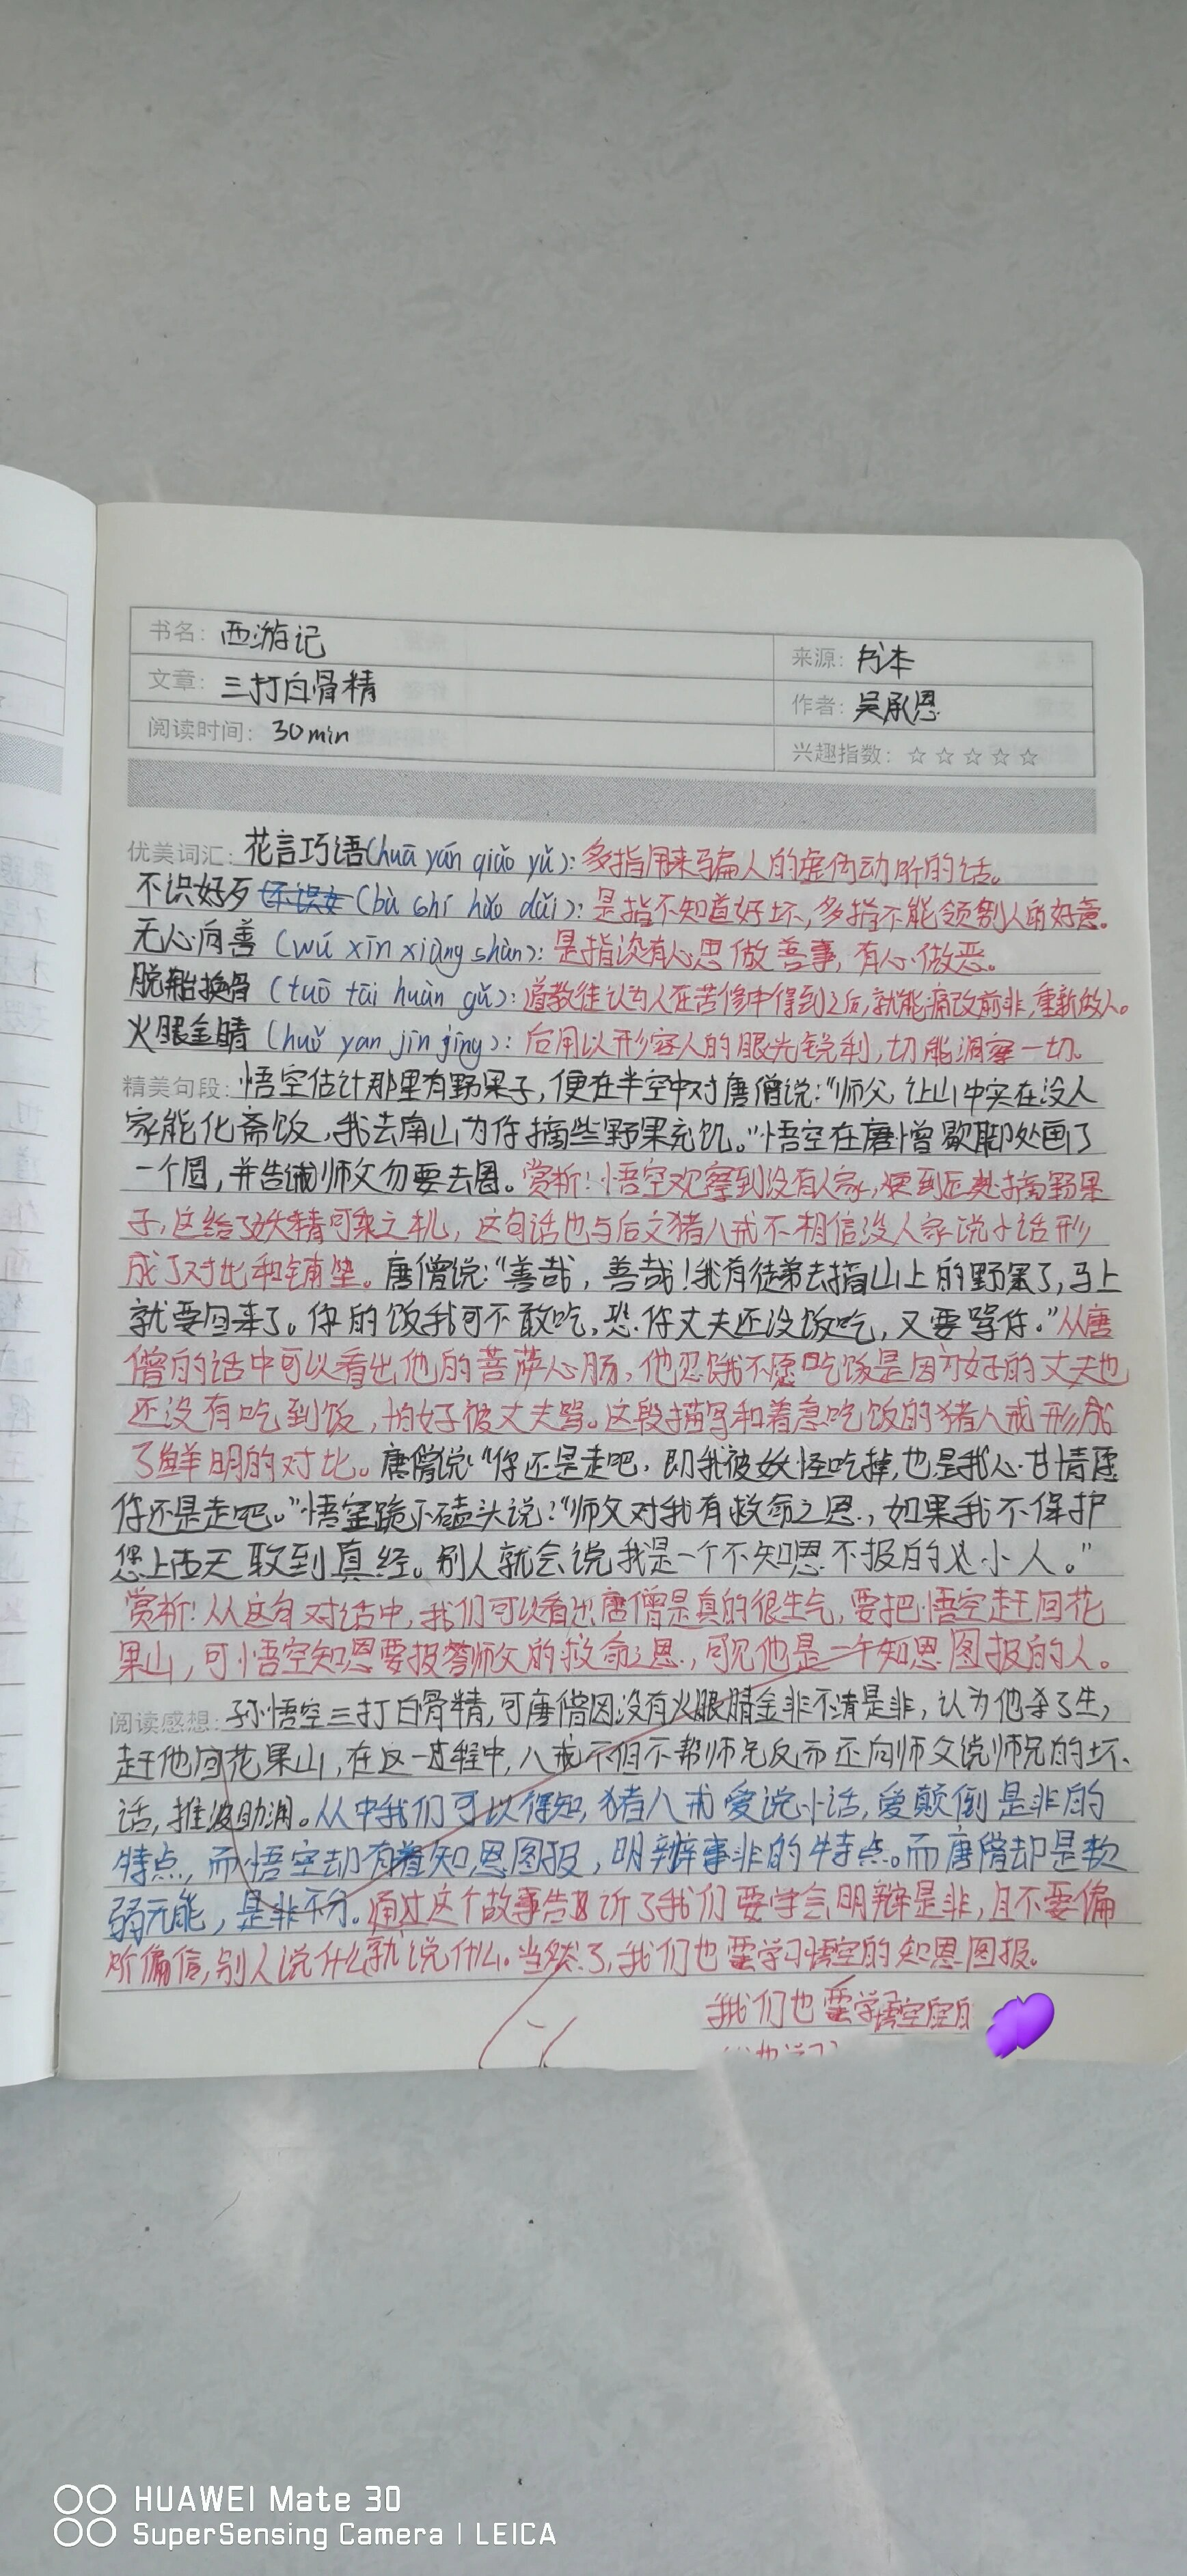 书名: 西游记
来源: 书本
文章: 三打白骨精
作者: 吴承恩
阅读时间: 30min
兴趣指数: ☆☆☆☆☆
优美词汇: 花言巧语(huā yán qiǎo yǔ): 多指用来骗人的虚伪动听的话。
不识好歹 (bù shí hǎo dǎi): 是指不知道好坏,多指不能领别人的好意。
无心向善 (wú xīn xiàng shàn): 是指没有心思做善事,有心做恶。
脱胎换骨 (tuō tāi huàn gǔ): 道教徒认为人在苦修中得到之后,就能痛改前非,重新做人。
火眼金睛 (huǒ yan jīn jīng): 后用以形容人的眼光锐利,切能洞察一切。
精美句段: 悟空估计那里有野果子,便在半空中对唐僧说:“师父,让山中实在没人
家能化斋饭,我去南山为你摘些野果充饥。”悟空在唐僧歇脚处画了
一个圆,并告诫师父勿要去圈。赏析!悟空观察到没有人家,便到匠处摘野果
子,这给了妖精可乘之机,这句话也与后文猪八戒不相信没人家说小话形
成了对比和铺垫。唐僧说:“善哉,善哉!我有徒弟去摘山上的野果了,马上
就要回来了。你的饭我可不敢吃,恐你丈夫还没饭吃,又要骂你。”从唐
僧的话中可以看出他的菩萨心肠,他忍饿不愿吃饭是因为好的丈夫也
还没有吃到饭,怕好被丈夫骂。这段描写和着急吃饭的猪八戒形成
了鲜明的对比。唐僧说:“你还是走吧,即我被妖怪吃掉,也是我心甘情愿
你还是走吧。”悟空跪下磕头说:“师父对我有救命之恩,如果我不保护
您上西天取到真经。别人就会说我是一个不知恩不报的小人。”
赏析!从这句对话中,我们可以看出唐僧是真的很生气,要把悟空赶回花
果山,可悟空知恩要报答师父的救命之恩,可见他是一个知恩图报的人。
阅读感想: 孙悟空三打白骨精,可唐僧因没有火眼睛金非不清是非,认为他杀了生,
赶他回花果山,在这一过程中,八戒不但不帮师兄反而还向师父说师兄的坏
话,推波助澜。从中我们可以得知,猪八戒爱说小话,爱颠倒是非的
特点,而悟空却有着知恩图报,明辨事非的特点。而唐僧却是软
弱无能,是非不分。通过这个故事告诉了我们要学会明辨是非,且不要偏
听偏信,别人说什么就说什么。当然了,我们也要学习悟空的知恩图报。
我们也要学悟空
HUAWEI Mate 30
SuperSensing Camera | LEICA